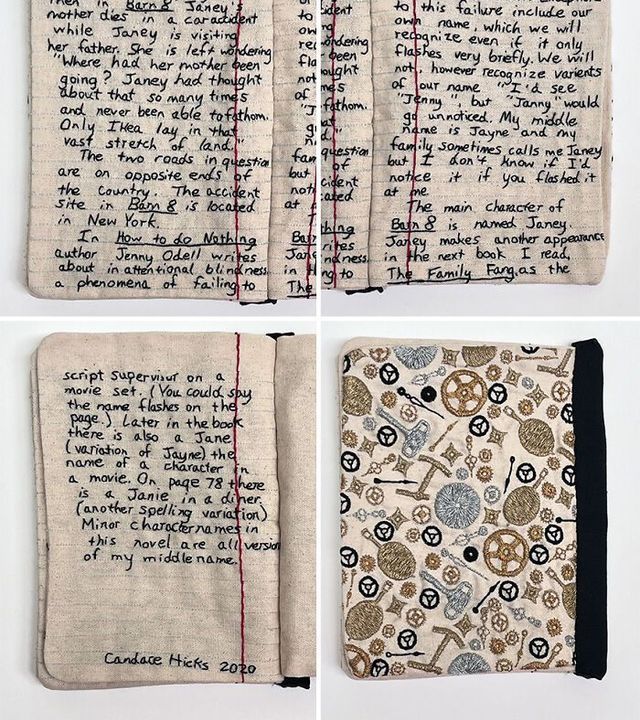 then in Barn 8 Janey's
mother dies in a caraccident
while Janey is visiting
her father. She is left wondering
"Where had her mother been
going? Janey had thought
about that so many times
and never been able to fathom.
Only Ikea lay in that
vast stretch of land."
The two roads in question
are on opposite ends of
the country. The accident
site in Barn 8 is located
in New York.
In How to do Nothing
author Jenny Odell writes
about in attentional blindness
a phenomena of failing to
to this failure include our
own name, which we will
recognize even if it only
flashes very briefly. We will
not, however recognize varients
of our name "I'd see
"Jenny", but "Janny" would
go unnoticed. My middle
name is Jayne and my
family sometimes calls me Janey
but I don't know if I'd
notice it if you flashed it
at me.
The main character of
Barn 8 is named Janey.
Janey makes another appearance
in the next book I read,
The Family Fang, as the
script supervisor on a
movie set. (You could say
the name flashes on the
page.) Later in the book
there is also a Jane
(variation of Jayne) the
name of a character in
a movie. On page 78 there
is a Janie in a diner.
(another spelling variation)
Minor character names in
this novel are all version
of my middle name.
Candace Hicks 2020